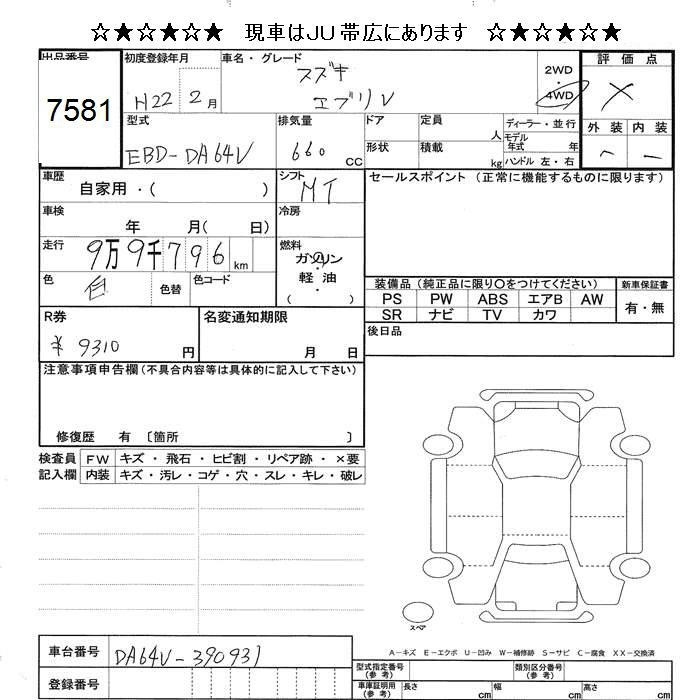 ☆★☆★☆☆ 現車はJU帯広にあります ★☆☆★☆★
出品番号
7581
初度登録年月
H22 2月
車名・グレード
スズキ
エブリV
2WD
・
4WD
評価点
X
型式
EBD-DA64V
排気量
660 cc
ドア
定員
人
形状
積載
kg
ディーラー・並行
モデル年式 年
ハンドル 左・右
外装 内装
車歴
自家用・( )
シフト
MT
セールスポイント (正常に機能するものに限ります)
車検
年 月( 日)
冷房
走行
9万9千796km
燃料
ガソリン
・
軽油
( )
色
色替
色コード
装備品 (純正品に限り○をつけてください)
新車保証書
PS PW ABS エアB AW
SR ナビ TV カワ
有・無
R券
¥9310円
名変通知期限
月 日
後日品
注意事項申告欄(不具合内容等は具体的に記入して下さい)
修復歴 有 〔箇所 〕
検査員記入欄
FW キズ・飛石・ヒビ割・リペア跡・×要
内装 キズ・汚レ・コゲ・穴・スレ・キレ・破レ
スペア
A-キズ E-エクボ U-凹み W-補修跡 S-サビ C-腐食 XX-交換済
車台番号
DA64V-390931
登録番号
型式指定番号(参考)
類別区分番号(参考)
車庫証明用(参考)
長さ cm 幅 cm 高さ cm